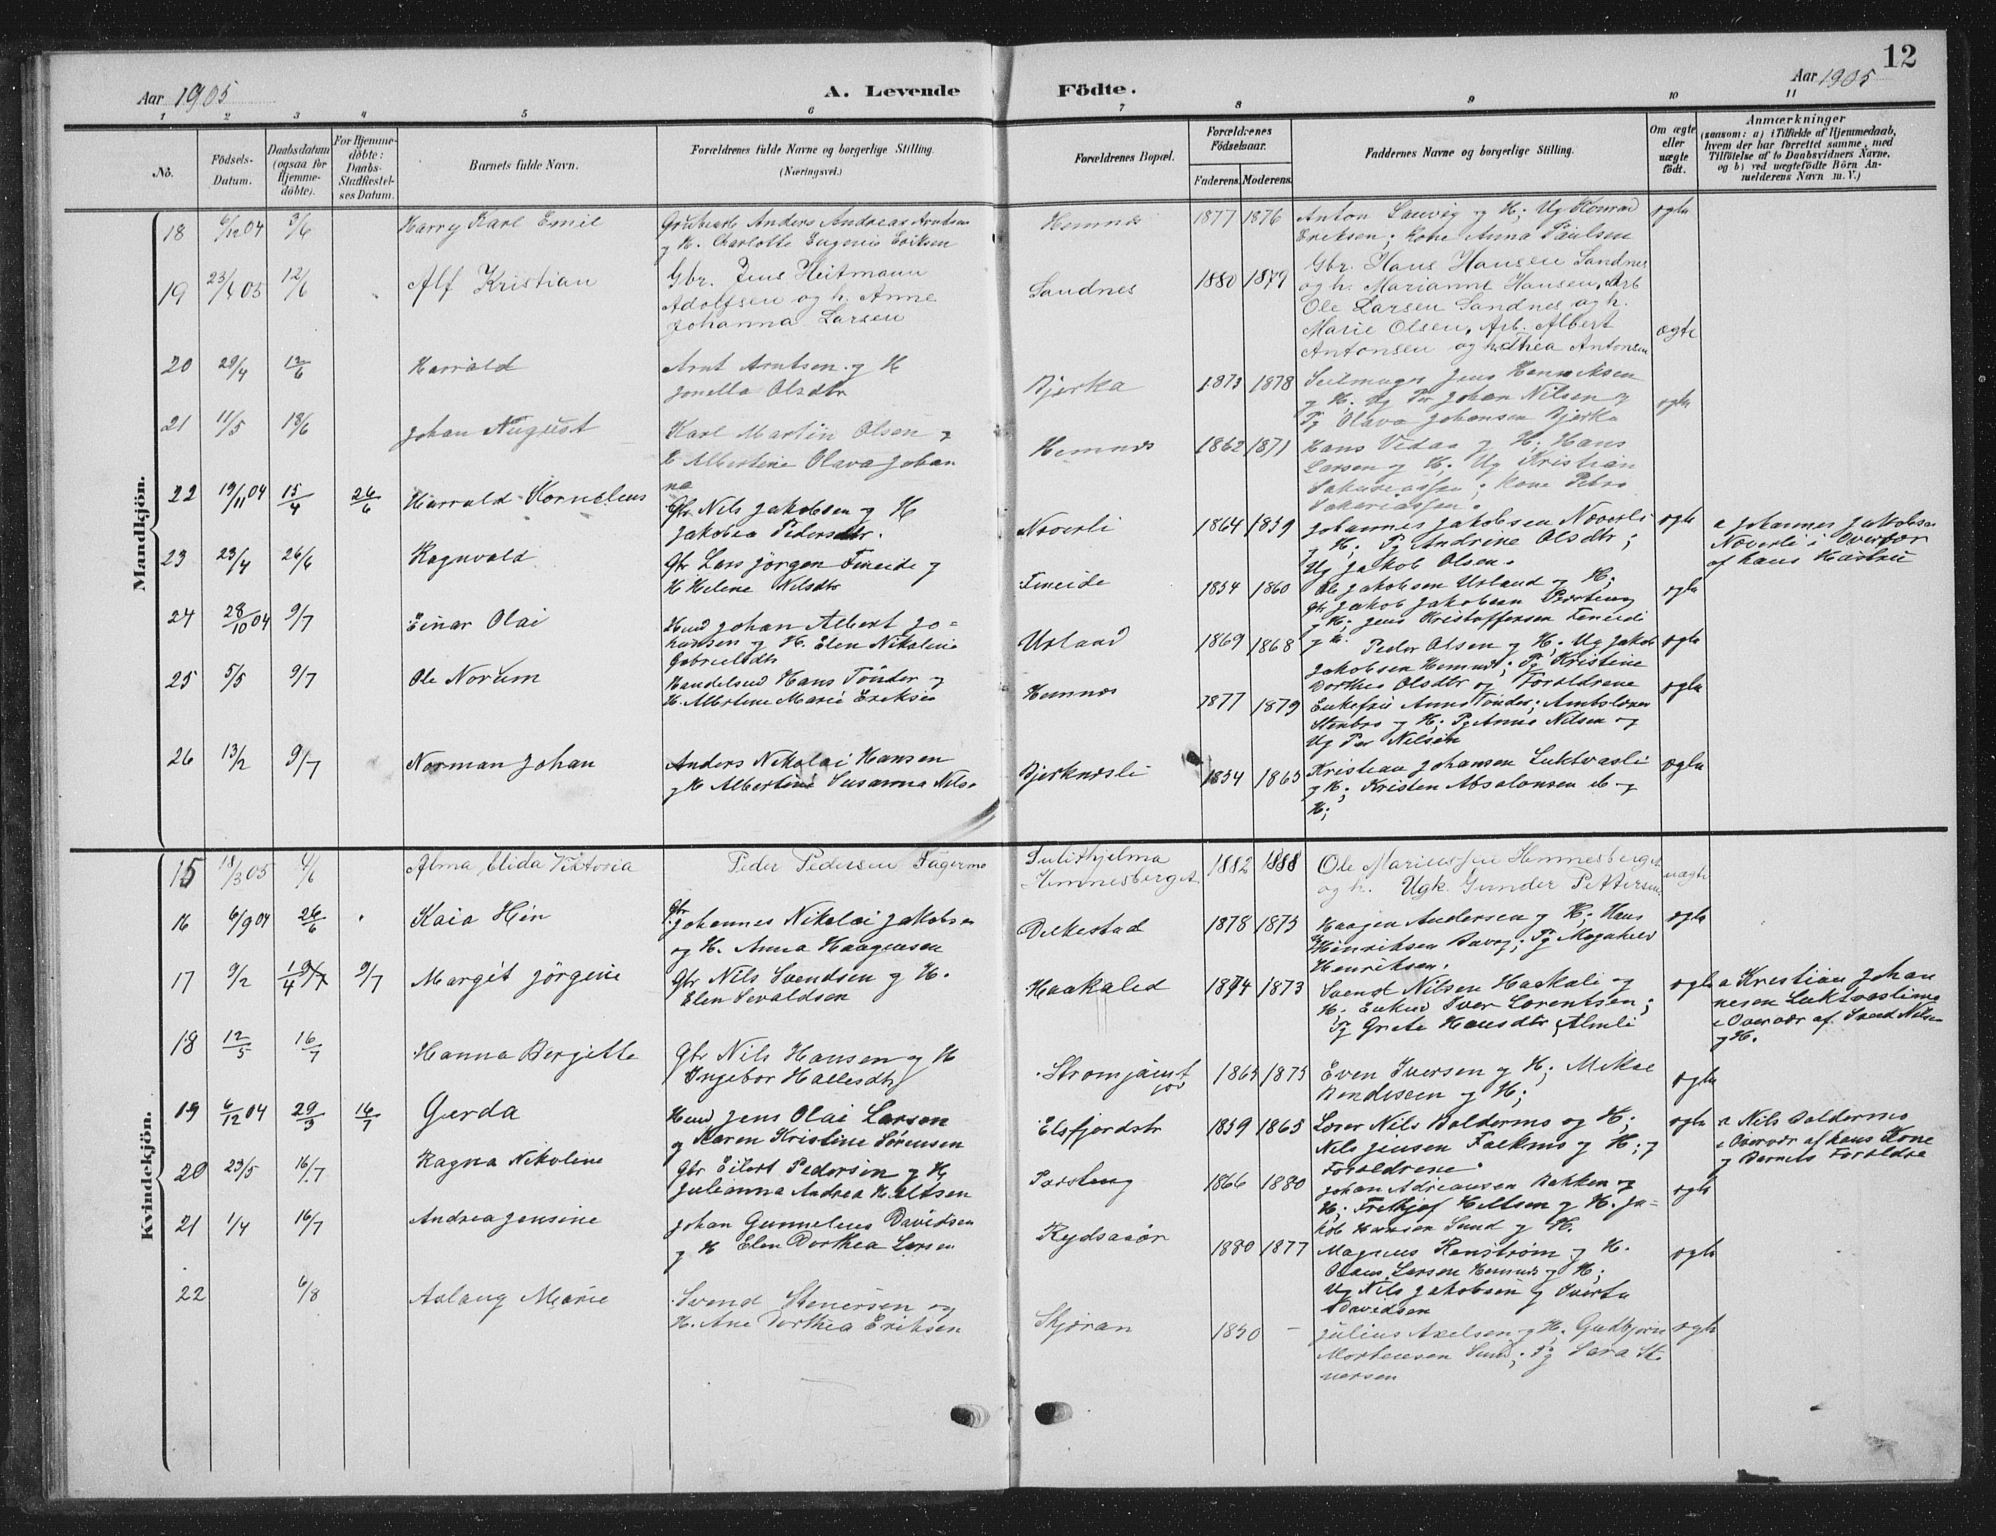 12
Aar 1905
A. Levende
Födte.
Aar 1905
1 2 3 4 5 6 7 8 9 10 11
No.
Födsels-Datum.
Daabsdatum (ogsaa for Hjemme-döbte).
For Hjemme-döbte: Daabs-Stadfæstel-ses Datum.
Barnets fulde Navn.
Forældrenes fulde Navne og borgerlige Stilling.
(Næringsvei.)
Forældrenes Bopæl.
Forældrenes Födselsaar.
Faderens. Moderens.
Faddernes Navne og borgerlige Stilling.
Om ægte eller uægte födt.
Anmærkninger
(saasom: a) i Tilfælde af Hjemmedaab, hvem der har forrettet samme, med Tilföielse af to Daabsvidners Navne, og b) ved uægtefödte Börn An-melderens Navn m. V.)
Mandkjön.
18 6/12 04 3/6 Harry Karl Emil
Anders Andreas Arntsen
og H. Charlotte Eugenie Eriksen
Hemnes 1877 1876
Anton Sauvig og H; Ug Konrad
Eriksen; Kone Anna Paulsen
ægte
19 23/4 05 12/6 Alf Kristian
Gbr. Jens Heitmann
Adolfsen og h. Anne
Johanna Larsen
Sandnes 1880 1879
Gbr. Hans Hansen Sandnes
og h. Marianne Hansen, Arb
Ole Larsen Sandnes og h.
Marie Olsen, Arb. Albert
Antonsen og h. Thea Antonsen
ægte
20 29/4 12/6 Harrald
Arnt Arntsen og H
Jonella Olsdtr
Bjerka 1873 1878
Jens Henriksen
og H. Ug Per Johan Nilsen og
Pg Olava Johansen Bjerka
ægte
21 11/5 18/6 Johan August
Karl Martin Olsen og
H Albertine Olava Johan
na
Hemnes 1862 1871
Hans Vedaa og H; Hans
Larsen og H; Ug Kristian
Sakariassen; Kone Petra
Sakariassen.
22 19/11 04 15/4 26/6 Harrald Kornelius
Gbr Nils Jakobsen og H
Jakobea Pedersdtr.
Næverli 1864 1859
Johannes Jakobsen Næverli
og H; Pg Andrine Olsdtr;
Ug Jakob Olsen.
ægte
a Johannes Jakobsen
Næverli i Overvær
af hans Hustru
23 23/4 26/6 Ragnvald
Gbr Lars Jörgen Fineide og
H Helene Nilsdtr
Fineide 1854 1860
Ole Jakobsen Urland og H;
Gbr Jakob Jakobsen
og H; Jens Kristoffersen Fineide
og H.
ægte
24 28/10 04 9/7 Einar Olai
Johan Albert Jo-
hansen og H. Elen Nikoline
Gabrielsdtr
Urland 1869 1868
Peder Olsen og H; Ug Jakob
Jakobsen Hemnes; Pg Kristine
Dorthea Olsdtr og Forældrene
ægte
25 5/5 9/7 Ole Norum
Hans Tönder og
H. Albertine Marie Eriksen
Hemnes 1877 1879
Enkefru Anne Tönder;
Stenbro og H; Pg Anna Nilsen og
Ug Per Nilsen
ægte
26 13/2 9/7 Norman Johan
Anders Nikolai Hansen
og H Albertine Susanna Nils.
Bjerknesli 1854 1865
Kristian Johansen Luktvasli
og H; Kristen Absalonsen ib og
H;
ægte
Kvindekjön.
15 18/3 05 4/6 Alma Elida Viktoria
Peder Pedersen Fagermo
Sulithjelma
Hemnesberget
1882 1888
Ole Mariussen Hemnesberget
og h. Ugk. Gunder Pettersen
uægte
16 6/9 04 26/6 Kaia Hen
Gbr Johannes Nikolai Jakobsen
og H. Anna Haagensen
Dilkestad 1878 1875
Haagen Andersen og H; Hans
Henriksen; Pg Magnhild
Henriksen.
ægte
17 9/2 1/4 9/7 9/7 Margit Jörgine
Gbr Nils Svendsen og H.
Elen Sevaldsen
Haakalid 1874 1873
Svend Nilsen Haakali og
H. Enkem Iver Lorentsen;
Pg Grete Hansdtr Almli
ægte
a Kristian Johan
nesen Luktvasli
i Overvær af Svend Nilsen
og H.
18 12/5 16/7 Hanna Bergitte
Gbr Nils Hansen og H
Ingebor Hallesdtr
1865 1875
Even Iversen og H; Mikal
Bendiksen og H;
ægte
19 6/12 04 29/3 16/7 Gerda
Jens Olai Larsen
og Karen Kristine Sörensen
Elsfjordstr 1859 1865
Lærer Nils Baldermo og H;
Nils Jensen Falkmo og H; og
Forældrene
ægte
a Nils Baldermo
i Overvær af hans Kone
og Barnets Forældre
20 23/5 16/7 Ragna Nikoline
Gbr Eilert Pedersen og H
Julianna Andrea Hiltsen
1866 1880
Johan Adriansen Bakken og
H; Fritjof Hiltsen og H. Ja-
kob Hansen Sund og H.
ægte
21 1/4 16/7 Andrea Jensine
Johan Gunnelius Davidsen
og H Elen Dorthea Larsen
1880 1877
Magnus Renström og H.
Larsen Hemnes og H;
Ug Nils Jakobsen og Iverta
Davidsen
ægte
22 6/8 Aslaug Marie
Svend Stenersen og
H. Ane Dorthea Eriksen
Skjæran 1850 —
Julius Axelsen og H; Gudbjörn
Mortensen Sund; Pg Sara St
nersen
ægte